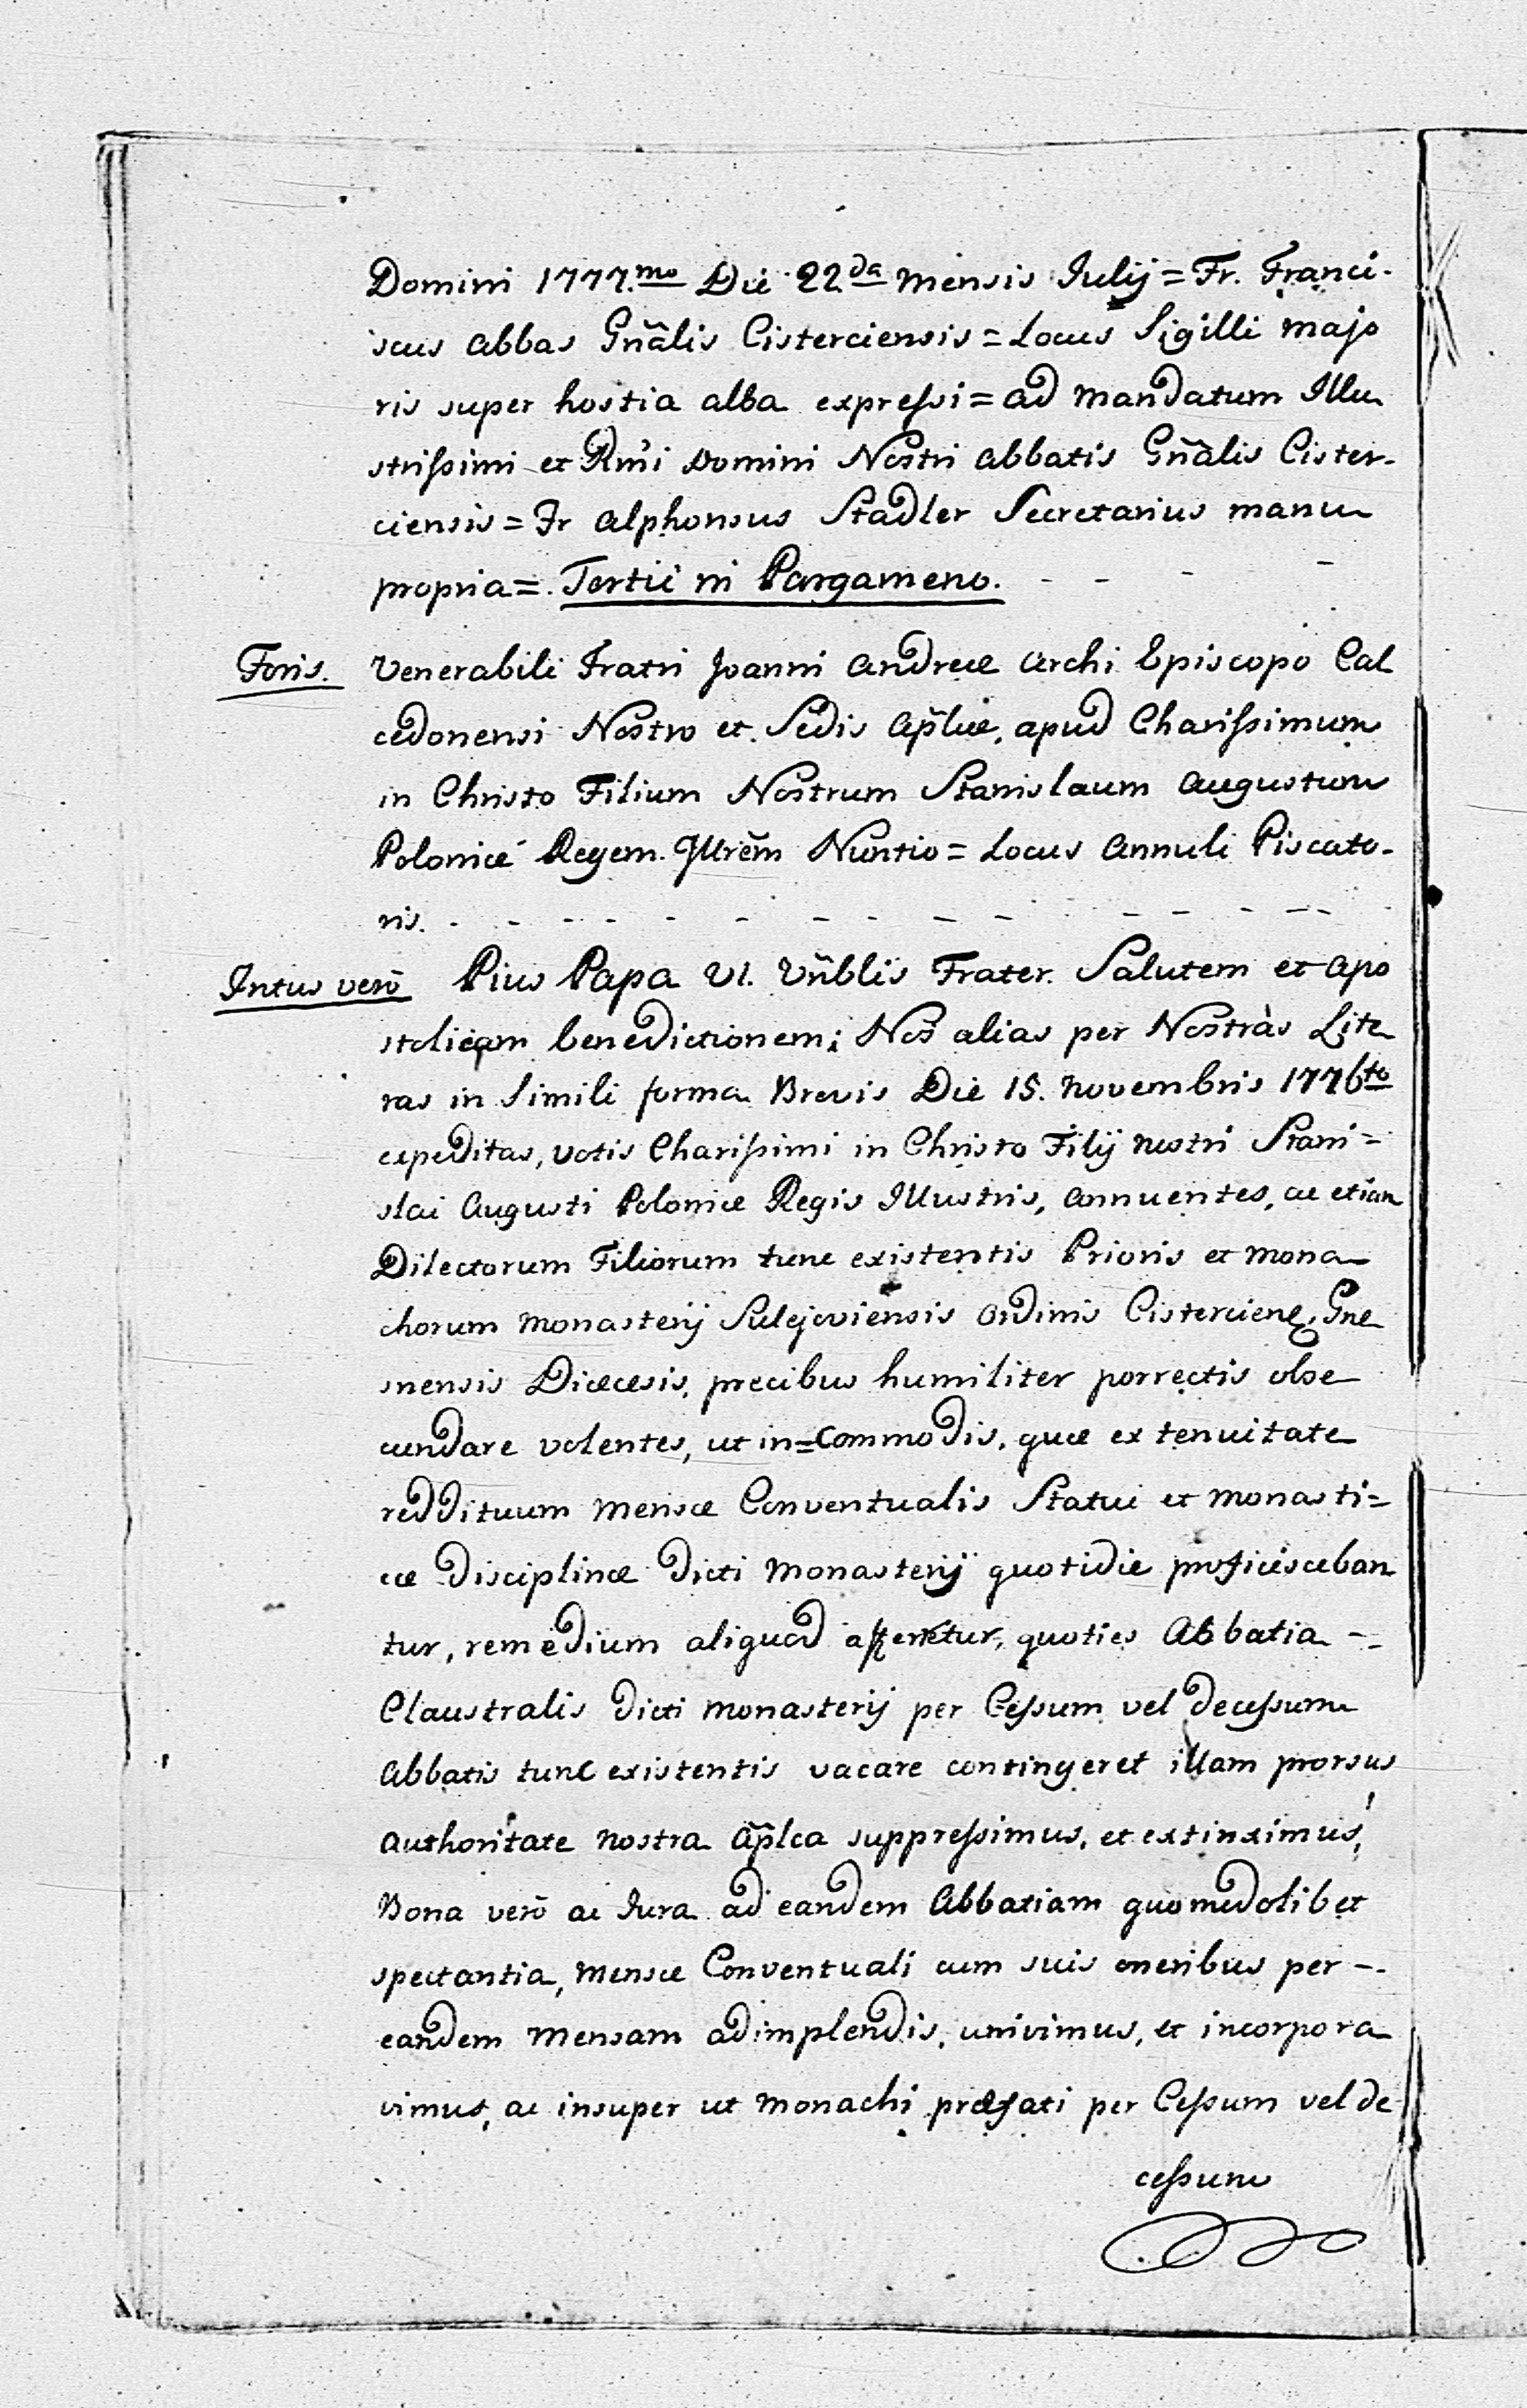 Domini 1777.mo Die 22da Mensis Julij = Fr. Franci-
scus Abbas Gñalis Cisterciensis = Locus Sigilli majo
ris super hostia alba expressi = ad Mandatum Illu
strissimi et Rmi Domini Nostri Abbatis Gñalis Cister-
ciensis = Fr Alphonsus Stadler Secretarius manu
propria =. Tertii in Pargameno. - - - -
Foris. Venerabili Fratri Joanni Andreæ Archi Episcopo Cal
cedonensi Nostro et Sedis Aplicæ, apud Charissimum
in Christo Filium Nostrum Stanislaum Augustum
Poloniæ Regem Illrem Nuntio = Locus Annuli Piscato-
ris. - - - - - - - - - - - - -
Intus verò Pius Papa VI. Vñblis Frater. Salutem et Apo
stolicam benedictionem; Nos alias per Nostràs Lite
ras in Simili forma Brevis Die 15. Novembris 1776to
expeditas, votis Charissimi in Christo Filij nostri Stani=
slai Augusti Poloniæ Regis Illustris, annuentes, ac etiam
Dilectorum Filiorum tunc existentis Prioris et Mona
chorum Monasterij Sulejoviensis Ordinis Cisterciens, Gne
snensis Diæcesis, precibus humiliter porrectis obse
cundare volentes, ut in=commodis, quæ ex tenuitate
reddituum Mensæ Conventualis Statui et Monasti=
cæ disciplinæ dicti Monasterij quotidie proficisceban
tur, remedium aliquod afferretur, quoties Abbatia -
Claustralis dicti Monasterij per Cessum vel decessum
Abbatis tunc existentis vacare contingeret illam prorsus
authoritate nostra Aplca suppressimus, et extinximus,
Bona verò ac Jura ad eandem Abbatiam quomodolibet
spectantia, Mensæ Conventuali cum suis oneribus per -
eandem Mensam adimplendis, univimus, et incorpora
vimus, ac insuper ut Monachi præfati per Cessum vel de
cessum